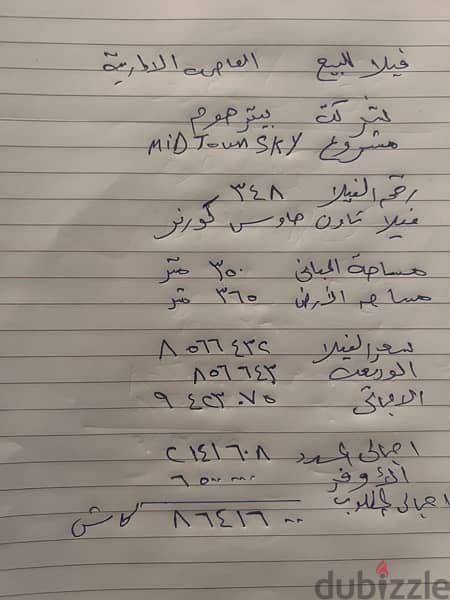 فيلا للبيع العاصمه الادارية
شركة بيتر هوم
مشروع MiDTown SKY
رقم الفيلا ٣٤٨
فيلا تاون هاوس كورنر
مساحة المبانى ٣٠٠ متر
مساحه الأرض ٣٦٠ متر
سعر الفيلا ٨٥٦٦٤٣٢
الوديعه ٨٥٦٦٤٣
الاجمالى ٩٤٢٣٠٧٥
اجمالى المسدد ٢١٤١٦٠٨
٦٥٠٠٠٠٠
اجمالى المطلوب
٨٦٤١٦٠٠ كاش
dubizzle